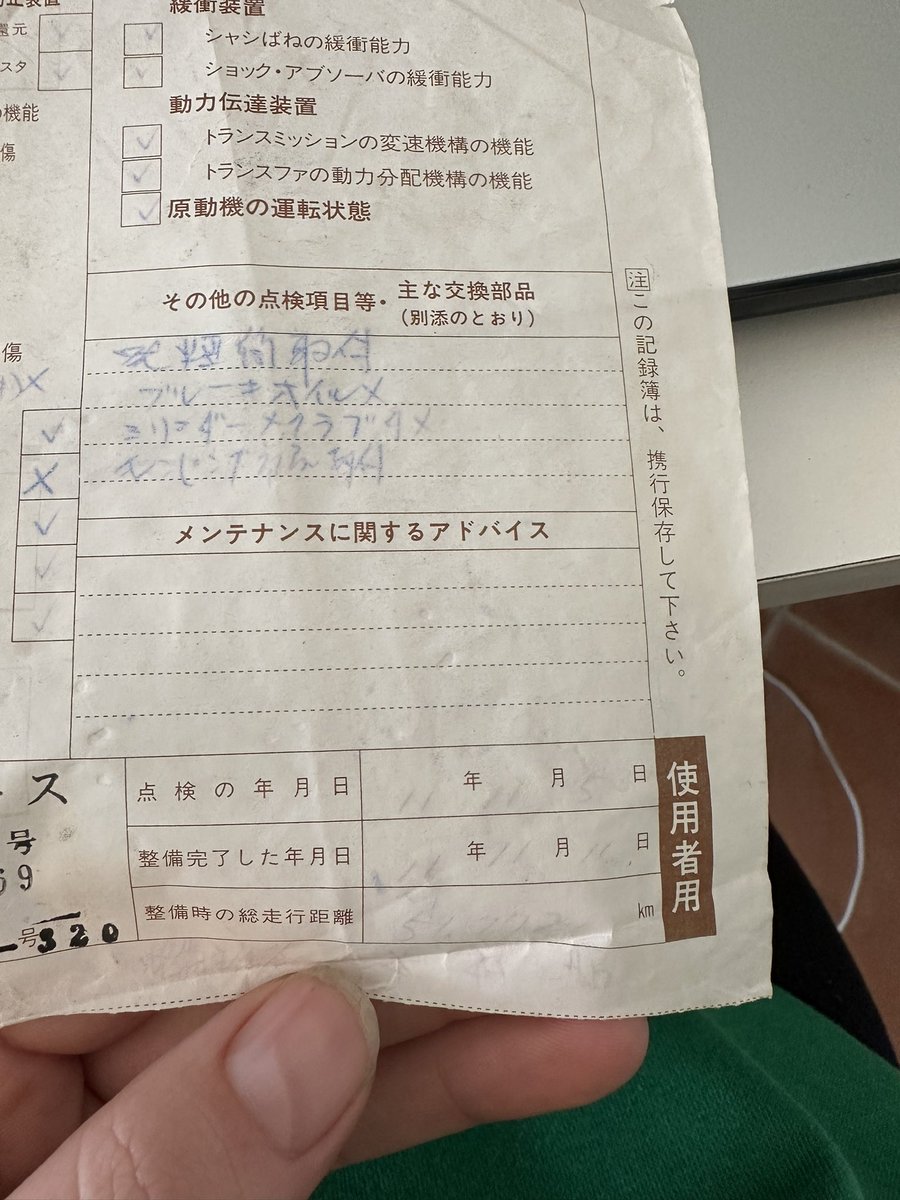 緩衝装置
還元
シャシばねの緩衝能力
スタ
ショック・アブソーバの緩衝能力
動力伝達装置
の機能
トランスミッションの変速機構の機能
傷
トランスファの動力分配機構の機能
原動機の運転状態
その他の点検項目等・主な交換部品
(別添のとおり)
傷
ブレーキオイル
メンテナンスに関するアドバイス
注 この記録簿は、携行保存して下さい。
ス
点検の年月日 年 月 日
号
整備完了した年月日 年 月 日
69
整備時の総走行距離 km
号320
使用者用